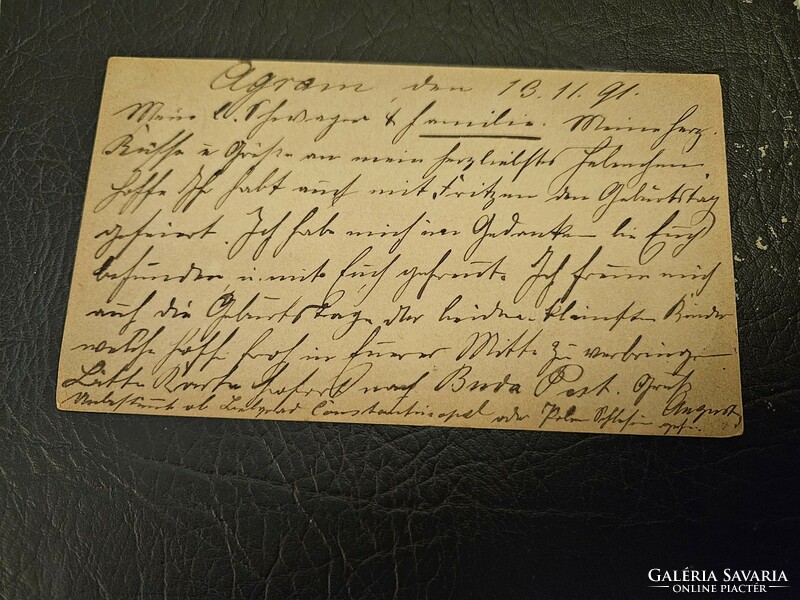 Agram, den 13.11.91.
Meine l. Schwager & Familie. Meine herz.
Küsse u Grüße an mein herzliebstes Helenchen
hoffe Ihr habt auch mit Fritzen den Geburtstag
gefeiert. Ich habe mich in Gedanken bei Euch
befunden u. mit Euch gefreut. Ich freue mich
auch die Geburtstage der beiden kleinsten Kinder
welche hoffe froh in Eurer Mitte zu verbringen
Bitte Karte sofort nach Buda Pest. Gruß
August
Unbestimmt ob Belgrad Constantinopel oder Polen Schlesien
GALÉRIA SAVARIA
ONLINE PIACTÉR